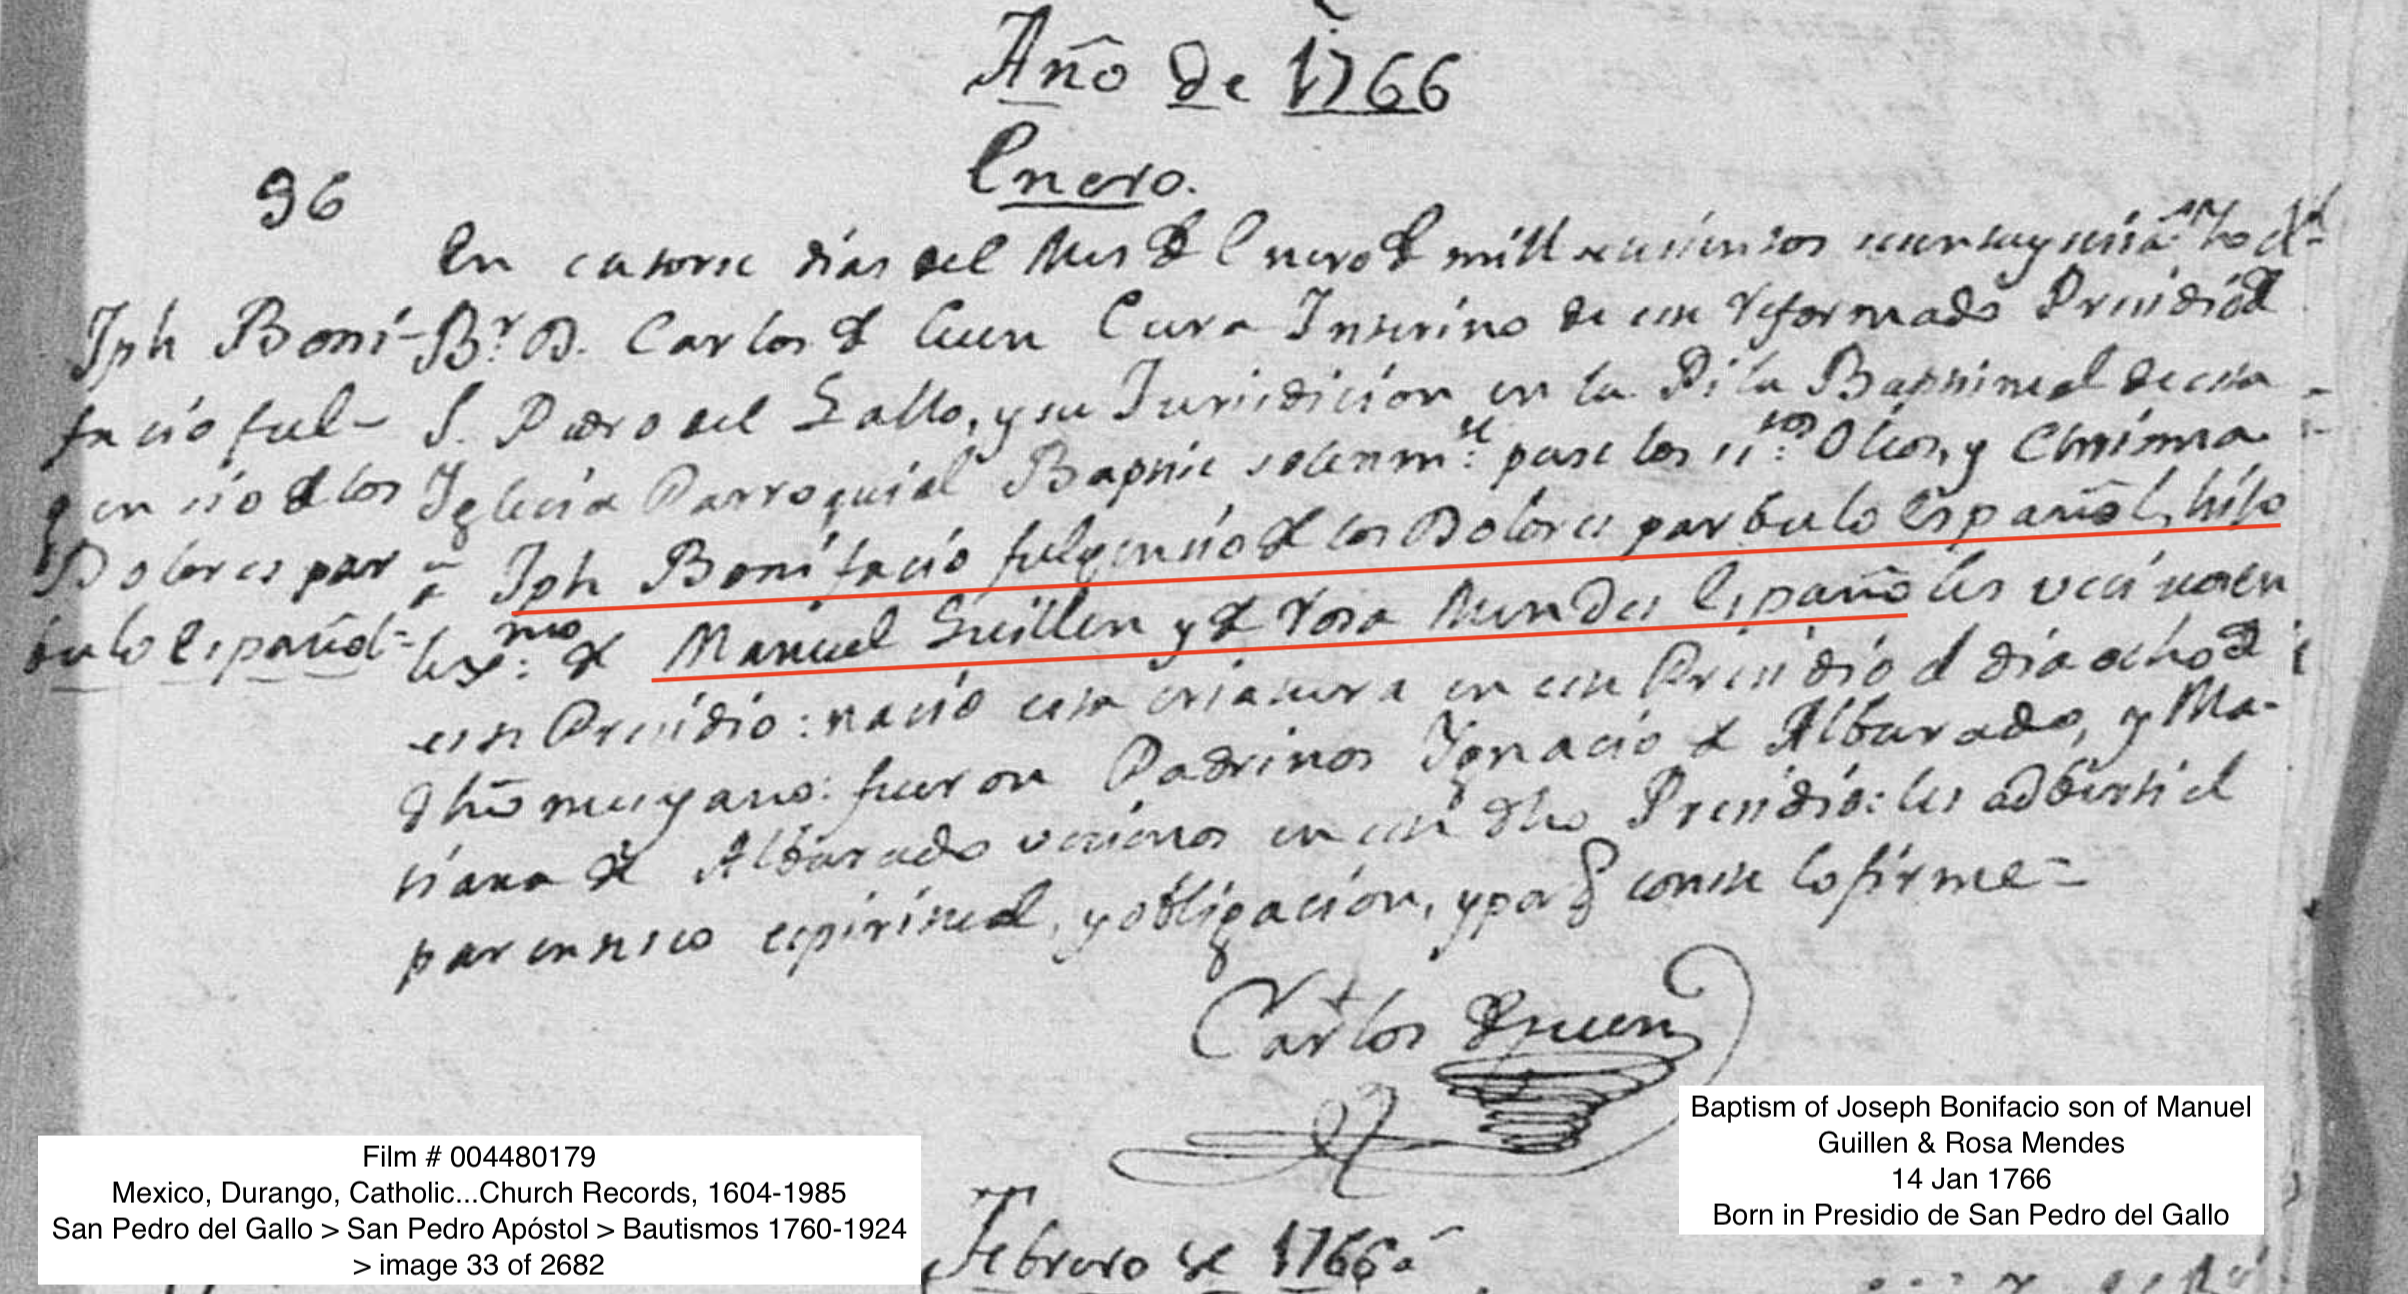 Año de 1766
Enero.
96
En catorse dias del Mes de Enero de mill setesientos sesentayseis añs Yo el
Jph Boni- Br. D. Carlos de Cuen Cura Interino de este reformado Presidio de
facio ful- S. Pedro del Gallo, y su Jurisdicion en la Pila Baptismal de esta
gensio de los Iglesia Parroquial Baptise solemmte: puse los stos: Oleos, y Chrisma
Dolores par- a Jph Bonifacio fulgensio de los Dolores parbulo Español, hijo
bulo Español= lexmo: de Manuel Guillen y de Rosa Mendes Españoles vecinos en
este Presidio: nacio esta criatura en este Presidio el dia ocho de
dho mes y año: fueron Padrinos Ignacio de Albarado, y Ma-
riana de Albarado vecinos en este dho Presidio: les adberti el
parentesco espiritual, y obligacion, y por q conste lo firme=
Carlos de Cuen
Febrero de 1766
Film # 004480179
Mexico, Durango, Catholic...Church Records, 1604-1985
San Pedro del Gallo > San Pedro Apóstol > Bautismos 1760-1924
> image 33 of 2682
Baptism of Joseph Bonifacio son of Manuel
Guillen & Rosa Mendes
14 Jan 1766
Born in Presidio de San Pedro del Gallo